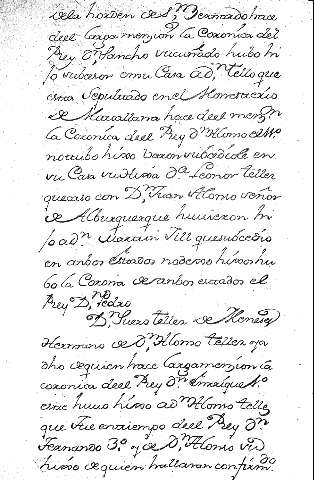 de la horden de Sn Bernardo hace
deel larga menzion la Coronica del
Rey Dn Sancho su cuñado hubo hi
jo subcesor en su Casa a Dn tello que
esta sepultado en el Monesterio
de Matallana hace deel menzn
la Coronica deel Rey Dn Alonso
no tubo hixso varon subcediole en
su Casa su hixsa Da Leonor tellez
que caso con Dn Juan Alonso señor
de Alburquerque huvieron hi
jo a Dn Martin Jill que subcedio
en anbos estados no dexso hixso hu
bo la Corona de anbos estados el
Rey Dn Pedro
Dn Suero tellez de Meneses
Hermano de Dn Alonso tellez ya
dho de quien hace larga menzion la
coronica deel Rey Dn Enrique 1o
este huuo hixso a Dn Alonso tellez
que fue en tiempo deel Rey Dn
Fernando 3o y de Dn Alonso su
hixso de quien hallaran confirm